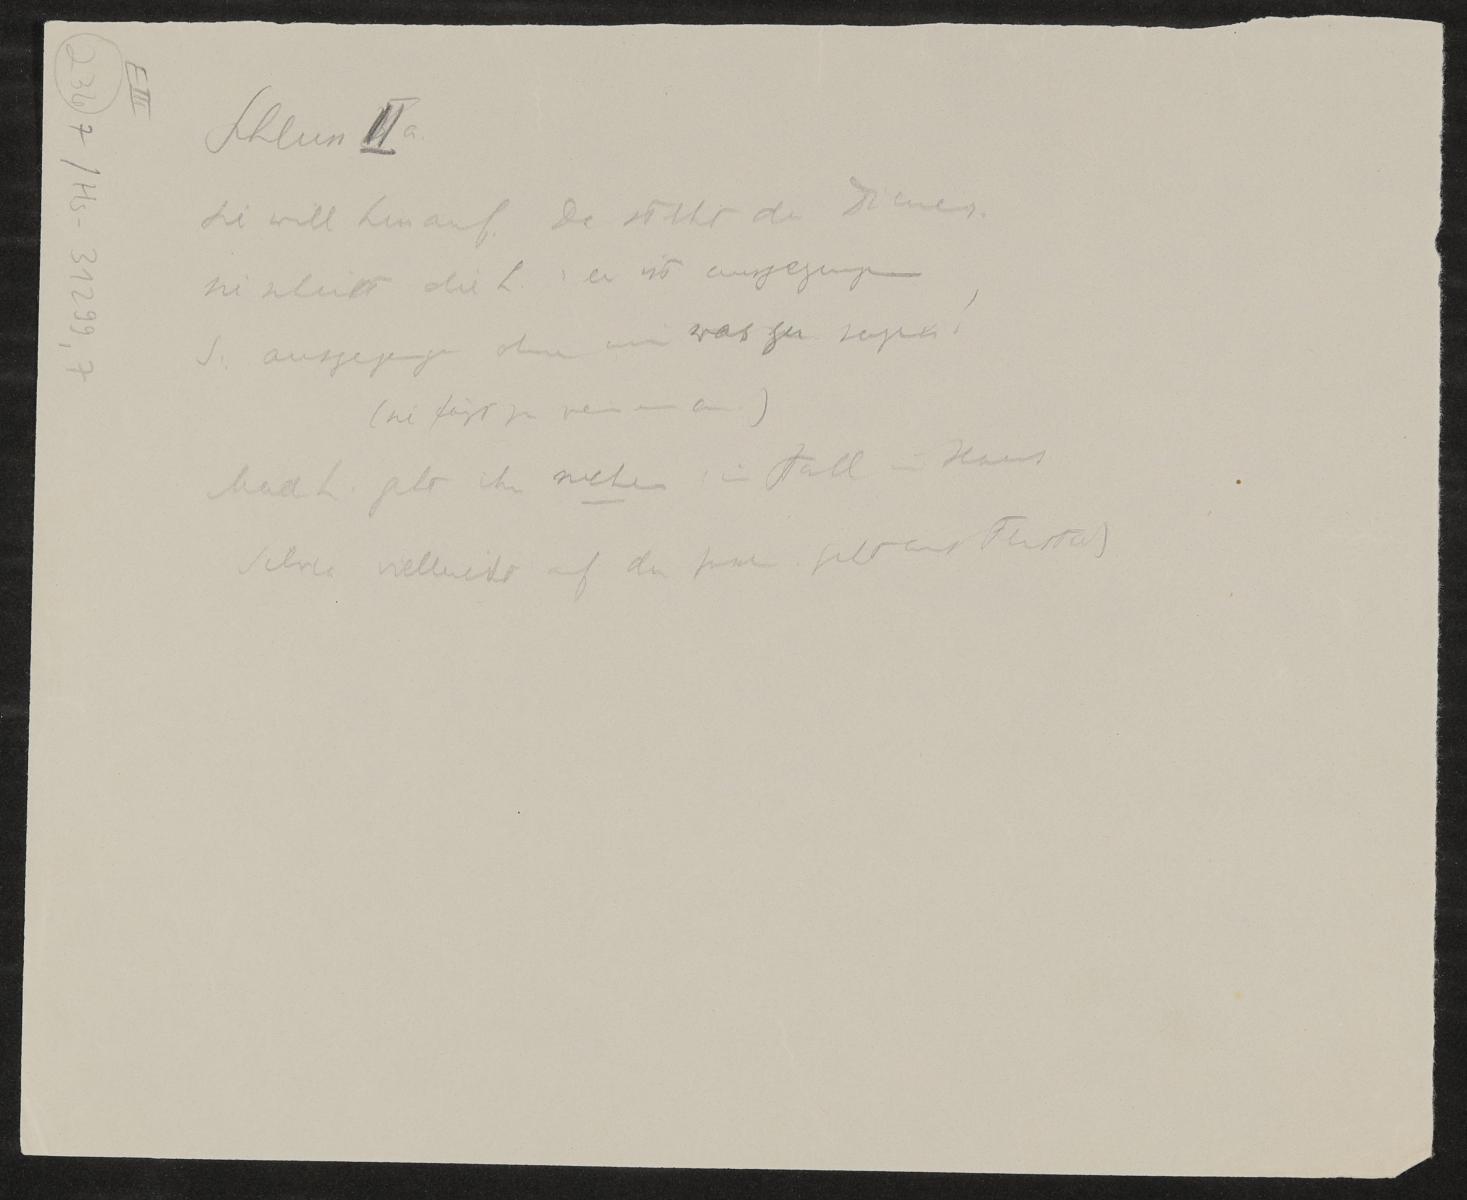 E III
236 7 / Hs-31299,7
Schluss II a.
Sie will hinauf. Da steht der Diener.
Sie schickt die L. : er ist ausgegangen
S. ausgegangen ohne mir was zu sagen!
(sie fängt zu weinen an)
Mad L. geht ihn suchen : im Stall im Haus
Silvia vielleicht auf der geht ans Fenster)